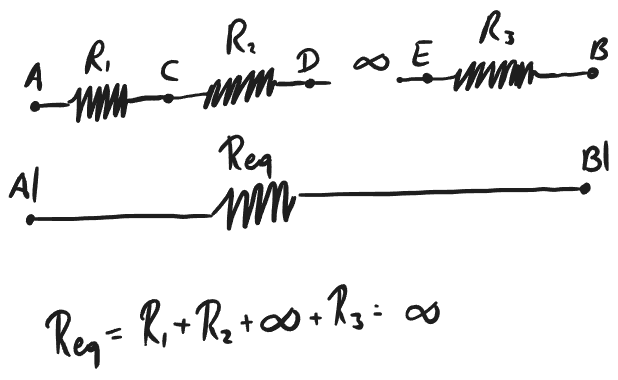 A R₁ C R₂ D ∞ E R₃ B
A| Req B|
Req = R₁ + R₂ + ∞ + R₃ = ∞